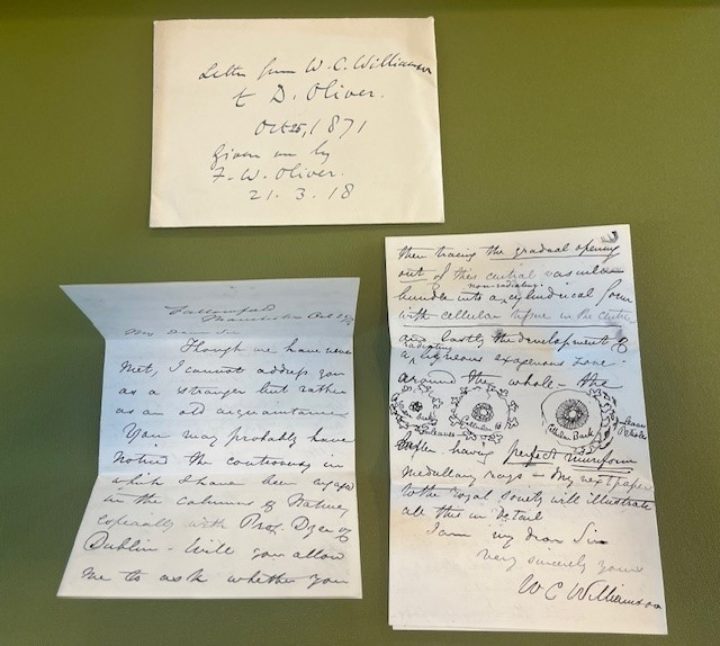 Letter from W. C. Williamson
to D. Oliver.
Oct 25, 1871
Given me by
F. W. Oliver.
21. 3. 18
Fallowfield
Manchester Oct 25
My Dear Sir
Though we have never
met, I cannot address you
as a stranger but rather
as an old acquaintance
You may probably have
noticed the controversy in
which I have been engaged
in the columns of Nature,
especially with Prof. Dyer of
Dublin - Will you allow
me to ask whether you
then tracing the gradual opening
out of this central vascular
non-radiating
bundle into a cylindrical form
with cellular tissue in the centre
and lastly the development of
radiating
a ligneous exogenous zone
around the whole - the
Cellular Bark
Leaves
Cellular Bark
Leaves
Petioles
latter having perfect muriform
medullary rays - My next paper
to the Royal Society will illustrate
all this in detail
I am my dear Sir
very sincerely yours
W C Williamson